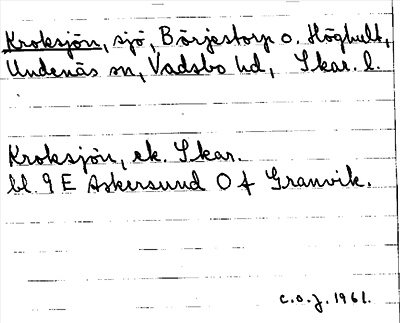 Kroksjön, sjö, Börjestorp o. Höghult,
Undenäs sn, Vadsbo hd, Skar. l.
Kroksjön, ek. Skar.
bl. 9 E Askersund O f Granvik.
c.o.j. 1961.